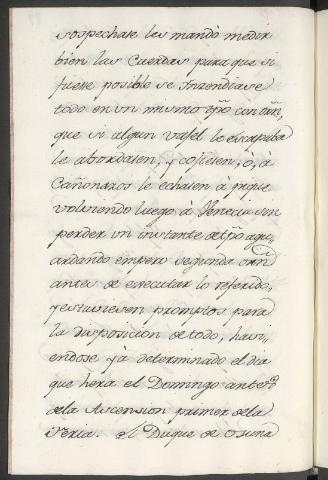 sospechase les mandò medir
bien las Cuerdas para que si
fuesse posible se Inzendiase
todo en un mismo tpõ con orñ,
que si algun vasel le escapaba
le abordasen, y cojiesen, o, à
Cañonazos le echasen à pique
volviendo luego à Venecia sin
perder un instante de tpõ agu,
ardando empero segunda orñ
antes de executar lo referido,
y estuviesen promptos para
la disposicion de todo, havi,
endose ya determinado el dia
que hera el Domingo antes
de la Ascension primer de la
Feria. El Duque de Osuna